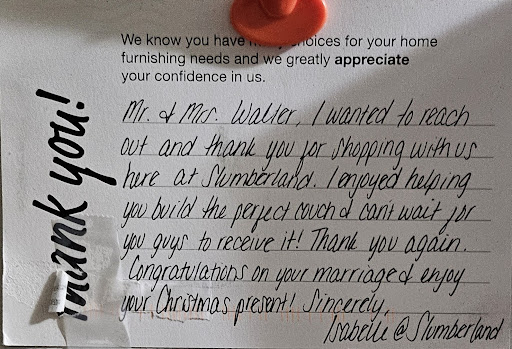 We know you have many choices for your home
furnishing needs and we greatly appreciate
your confidence in us.
Thank you!
Mr. & Mrs. Walter, I wanted to reach
out and thank you for shopping with us
here at Slumberland. I enjoyed helping
you build the perfect couch & can't wait for
you guys to receive it! Thank you again.
Congratulations on your marriage & enjoy
your Christmas present! Sincerely,
Isabelle @ Slumberland